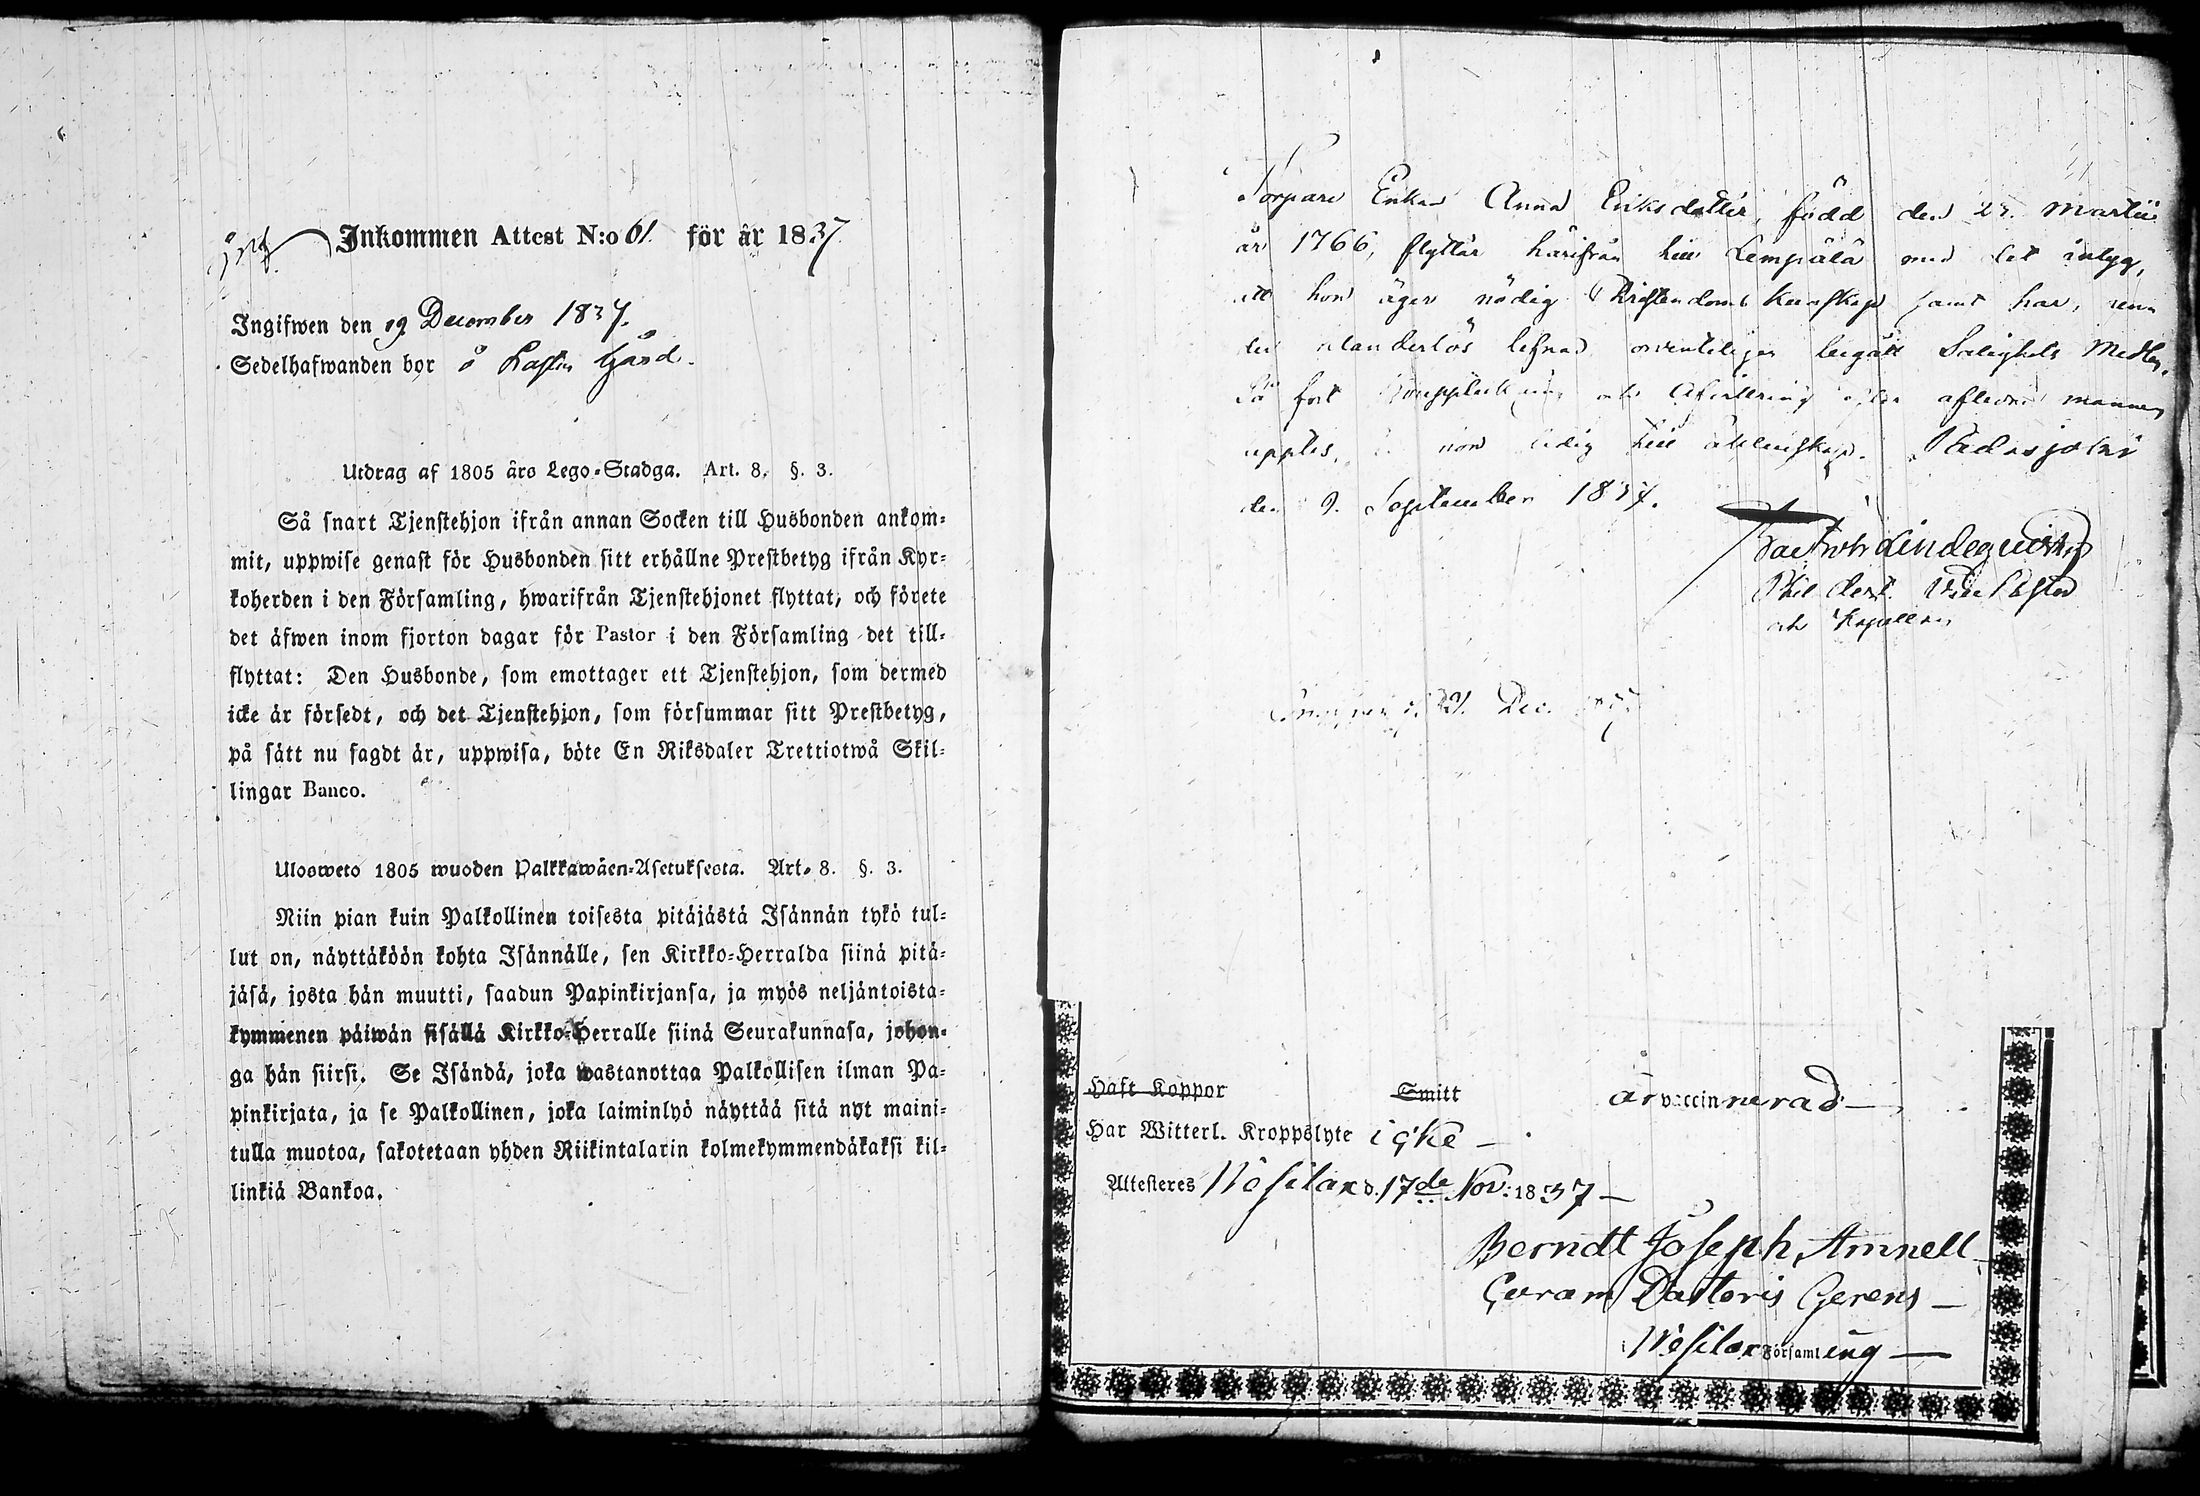 Inkommen Attest N:o 61. för år 1837
Ingifwen den 19 December 1837.
Sedelhafwanden bor å Gård.
Utdrag af 1805 års Lego-Stadga. Art. 8. §. 3.
Så snart Tjenstehjon ifrån annan Socken till Husbonden ankom-
mit, uppwise genast för Husbonden sitt erhållne Prestbetyg ifrån Kyr-
koherden i den Församling, hwarifrån Tjenstehjonet flyttat, och förete
det äfwen inom fjorton dagar för Pastor i den Församling det till-
flyttat: Den Husbonde, som emottager ett Tjenstehjon, som dermed
icke är försedt, och det Tjenstehjon, som försummar sitt Prestbetyg,
på sätt nu sagdt är, uppwisa, böte En Riksdaler Trettiotwå Skil-
lingar Banco.
Ulosweto 1805 wuoden Palkkawäen-Asetuksesta. Art. 8. §. 3.
Niin pian kuin Palkollinen toisesta pitäjästä Isännän tykö tul-
lut on, näyttäköön kohta Isännälle, sen Kirkko-Herralda siinä pitä-
jäsä, josta hän muutti, saadun Papinkirjansa, ja myös neljäntoista-
kymmenen päiwän sisällä Kirkko-Herralle siinä Seurakunnasa, johon-
ga hän siirsi. Se Isändä, joka wastanottaa Palkollisen ilman Pa-
pinkirjata, ja se Palkollinen, joka laiminlyö näyttää sitä nyt maini-
tulla muotoa, sakotetaan yhden Riikintalarin kolmekymmendäkaksi kil-
linkiä Bankoa.
Torpare Enkan Anna Eriksdotter, född den 25. Martii
år 1766, flyttar härifrån till Lempäälä med det intyg,
att hon äger nödig Christendoms Kunskap samt har, under
en klanderlös lefnad ordenteligen begått Salighets Medlen.
Så fort och Afvittring efter aflidne mannen
upptes, är hon ledig till äktenskap. Padasjoki
den 9. September 1837.
Lindequist
Phil. Cand. Vice Pastor
och Kapellan
21. Dec.
Haft Koppor Smitt är vaccinnerad —
Har Witterl. Kroppslyte icke —
Attesteres Wesilax d. 17de Nov: 1837 —
Berndt Joseph Amnell
Curam Pastoris Gerens —
i Wesilax Församling —